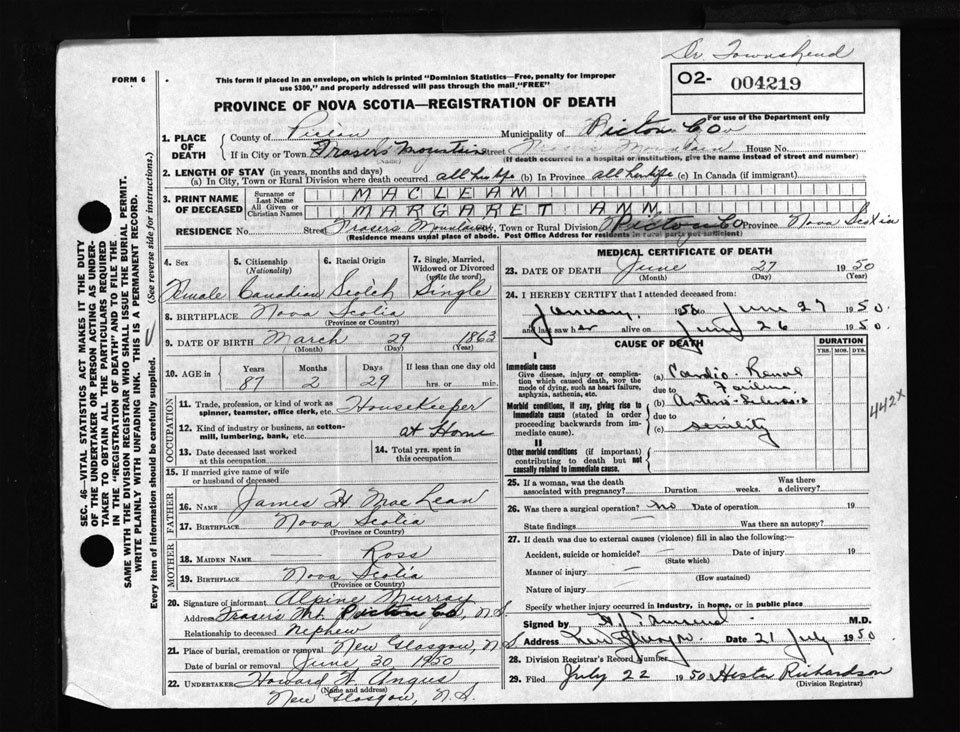 Dr. Townshend
FORM 6
This form if placed in an envelope, on which is printed "Dominion Statistics—Free, penalty for improper
use $300," and properly addressed will pass through the mail "FREE"
O2- 004219
For use of the Department only
PROVINCE OF NOVA SCOTIA—REGISTRATION OF DEATH
1. PLACE OF DEATH
County of Pictou Municipality of Pictou Co
If in City or Town Frasers Mountain (Name) Street Frasers Mountain House No.
(If death occurred in a hospital or institution, give the name instead of street and number)
2. LENGTH OF STAY (in years, months and days)
(a) In City, Town or Rural Division where death occurred all her life (b) In Province all her life (c) In Canada (if immigrant)
3. PRINT NAME OF DECEASED
Surname or Last Name MACLEAN
All Given or Christian Names MARGARET ANN
RESIDENCE No. Street Frasers Mountain City, Town or Rural Division Pictou Co Province Nova Scotia
(Residence means usual place of abode. Post Office Address for residents in rural parts not sufficient)
4. Sex Female
5. Citizenship (Nationality) Canadian
6. Racial Origin Scotch
7. Single, Married, Widowed or Divorced (write the word) Single
8. BIRTHPLACE Nova Scotia
(Province or Country)
9. DATE OF BIRTH March 29 1863
(Month) (Day) (Year)
10. AGE in Years Months Days If less than one day old
87 2 29 hrs. or min.
OCCUPATION
11. Trade, profession, or kind of work as spinner, teamster, office clerk, etc. Housekeeper
12. Kind of industry or business, as cotton-mill, lumbering, bank, etc. at Home
13. Date deceased last worked at this occupation
14. Total yrs. spent in this occupation
15. If married give name of wife or husband of deceased
FATHER
16. NAME James H. MacLean
17. BIRTHPLACE Nova Scotia
(Province or Country)
MOTHER
18. MAIDEN NAME — Ross
19. BIRTHPLACE Nova Scotia
(Province or Country)
20. Signature of informant Alpine Murray
Address Frasers Mt. Pictou Co, N.S
Relationship to deceased Nephew
21. Place of burial, cremation or removal New Glasgow, N.S
Date of burial or removal June 30, 1950
22. UNDERTAKER Howard W. Angus
(Name and address)
New Glasgow, N.S.
MEDICAL CERTIFICATE OF DEATH
23. DATE OF DEATH June 27 1950
(Month) (Day) (Year)
24. I HEREBY CERTIFY that I attended deceased from:
January 1950 to June 27 1950
and last saw her alive on June 26 1950.
CAUSE OF DEATH
DURATION
YRS. MOS. DYS.
I
Immediate cause
Give disease, injury or complication which caused death, NOT the mode of dying, such as heart failure, asphyxia, asthenia, etc.
(a) Cardio-Renal
due to Failure
Morbid conditions, if any, giving rise to immediate cause (stated in order proceeding backwards from immediate cause).
(b) Arterio-Sclerosis
due to
(c) senility
442X
II
Other morbid conditions (if important) contributing to death but not causally related to immediate cause.
25. If a woman, was the death associated with pregnancy? Duration weeks. Was there a delivery?
26. Was there a surgical operation? No Date of operation 19
State findings — Was there an autopsy?
27. If death was due to external causes (violence) fill in also the following:
Accident, suicide or homicide? — Date of injury 19
(State which)
Manner of injury —
(How sustained)
Nature of injury
Specify whether injury occurred in industry, in home, or in public place
Signed by M.D.
Address New Glasgow. Date 21 July 1950
28. Division Registrar's Record Number
29. Filed July 22 1950 Hester Richardson
(Division Registrar)
SEC. 46—VITAL STATISTICS ACT MAKES IT THE DUTY
OF THE UNDERTAKER OR PERSON ACTING AS UNDER-
TAKER TO OBTAIN ALL THE PARTICULARS REQUIRED
IN THE "REGISTRATION OF DEATH" AND TO FILE THE
SAME WITH THE DIVISION REGISTRAR WHO SHALL ISSUE THE BURIAL PERMIT.
WRITE PLAINLY WITH UNFADING INK. THIS IS A PERMANENT RECORD.
Every item of information should be carefully supplied. (See reverse side for instructions.)